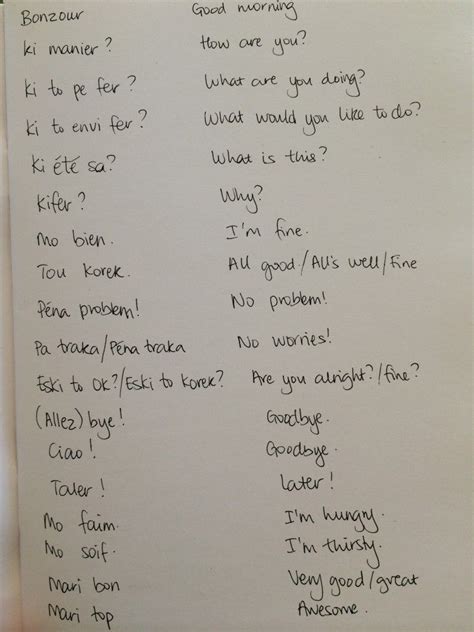 Bonzour Good morning
ki manier? How are you?
ki to pe fer? What are you doing?
ki to envi fer? What would you like to do?
ki été sa? What is this?
kifer? Why?
Mo bien. I'm fine.
Tou korek. All good/All's well/Fine
Péna problem! No problem!
Pa traka/Péna traka No worries!
Eski to OK?/Eski to korek? Are you alright?/fine?
(Allez) bye! Goodbye.
Ciao! Goodbye.
Taler! Later!
Mo faim. I'm hungry.
Mo soif. I'm thirsty.
Mari bon Very good/great
Mari top Awesome.